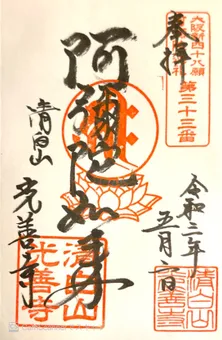 大阪新四十八願
第三十三番
奉拝
阿彌陀如来
清白山
光善寺
令和三年
五月六日
清白山
光善寺
清白山
光善寺